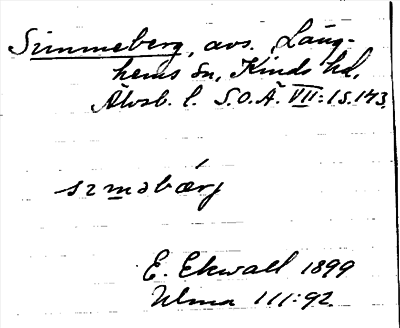 Simmeberg, avs. Läng-
hems sn, Kinds hd,
Älvsb. l. S.O.Ä. VII:1 s. 143.
sɪməbærj
E. Ekwall 1899
Ulma 111:92.